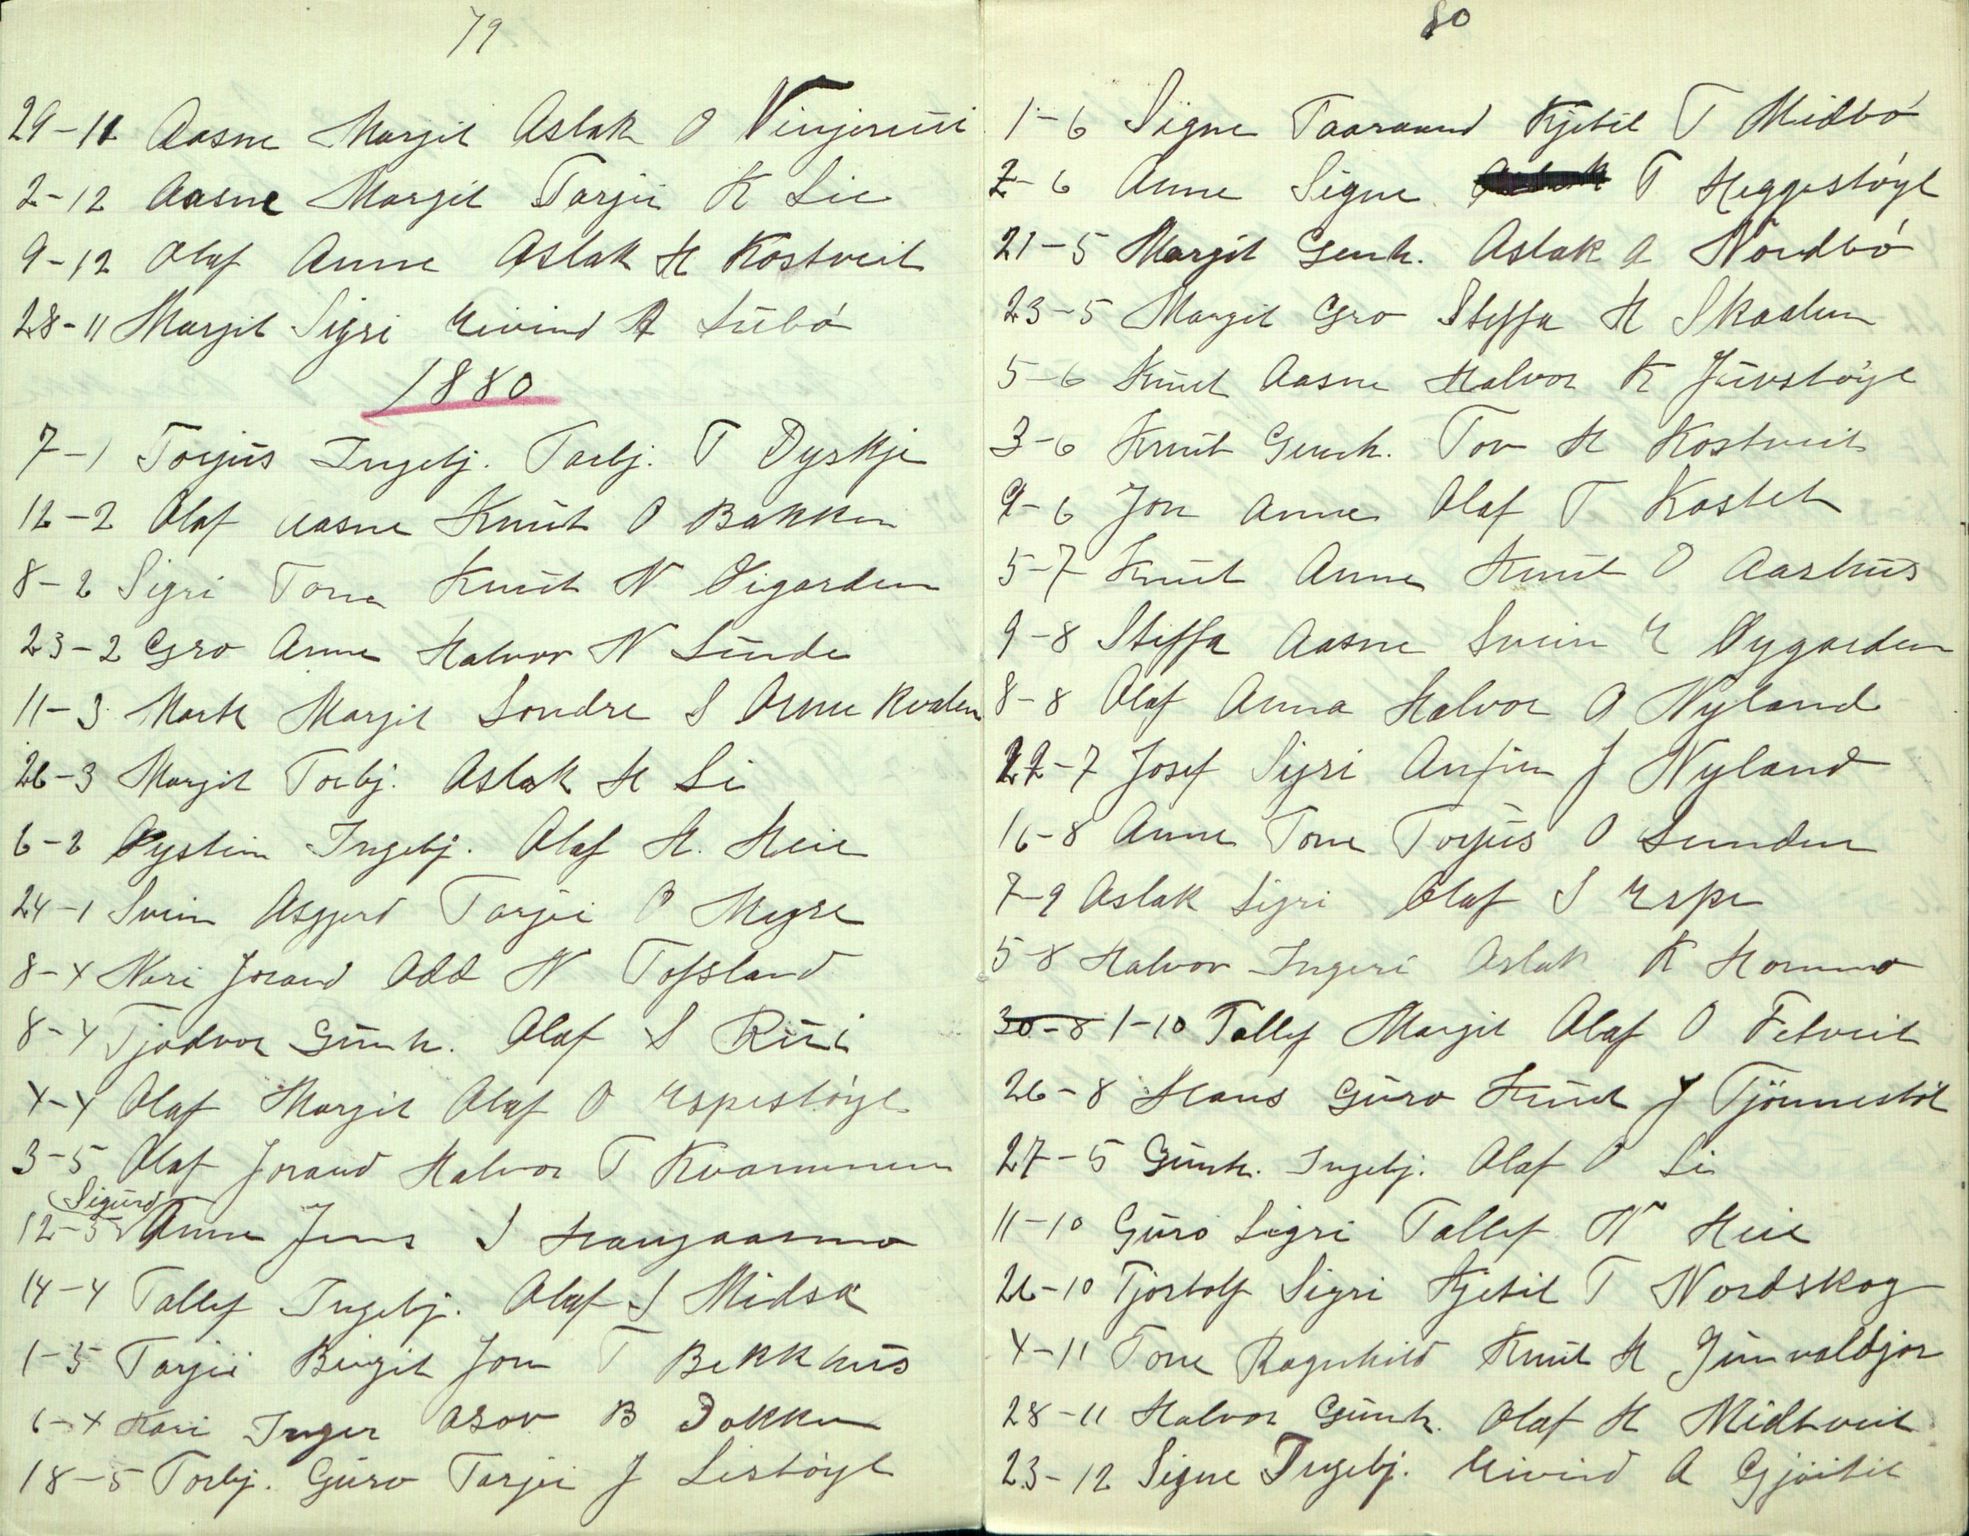 79
29-11 Aasne Margit Aslak O Vinjeruui
2-12 Aasne Margit Tarjei K Lie
9-12 Olaf Anne Aslak H Kostveit
28-11 Margit Sigri Eivind A Lübó
1880
7-1 Torjüs Ingebj. Torbj. T Dyskje
12-2 Olaf Aasne Knüt O Bakken
8-2 Sigri Tone Knüt N Øigarden
23-2 Gro Anne Halvor N Sünde
11-3 Marte Margit Sondre S Kvalen
26-3 Margit Torbj. Aslak H Li
6-2 Øystein Ingebj. Olaf H. Heie
24-1 Svein Asgjerd Tarjei O Myre
8-4 Neri Jorand Odd N Tofsland
8-4 Tjodvor Günh. Olaf S Rüi
4-4 Olaf Margit Olaf O Espestóyl
3-5 Olaf Jorand Halvor T Kvammen
(Sigurd)
12-5 Anne Jens S Haugaasmo
14-4 Tallef Ingebj. Olaf S Midsæ
1-5 Tarjei Birgit Jon T Bekkhüs
6-4 Kari Inger Asov B Dokken
18-5 Torbj. Güro Tarjei J Listóyl
80
1-6 Signe Taaraand Kjetil T Midbó
2-6 Anne Signe T Heggestóyl
21-5 Margit Gunh. Aslak A Nordbó
23-5 Margit Gro Steffa H Skaalen
5-6 Knüt Aasne Halvor K Jüvstóyl
3-6 Knüt Gunh. Tov H Kostveit
9-6 Jon Anne Olaf T Kastet
5-7 Knüt Anne Knüt O Aashüs
9-8 Steffa Aasne Svein E Øygarden
8-8 Olaf Anna Halvor O Nyland
22-7 Josef Sigri Anfin J Nyland
16-8 Anne Tone Torjüs O Sunden
7-9 Aslak Sigri Olaf S Espe
5-8 Halvor Ingeri Aslak K Hommo
30-8 1-10 Tallef Margit Olaf O Fetveit
26-8 Hans Güro Knüt J Tjönnestöl
27-5 Günh. Ingebj. Olaf O Li
11-10 Güro Sigri Tallef N Heie
26-10 Tjostolf Sigri Kjetil T Nordskog
4-11 Tone Ragnhild Knüt H Jünvaldjor
28-11 Halvor Günh. Olaf H Midtveit
23-12 Signe Ingebj. Eivind A Gjóitil